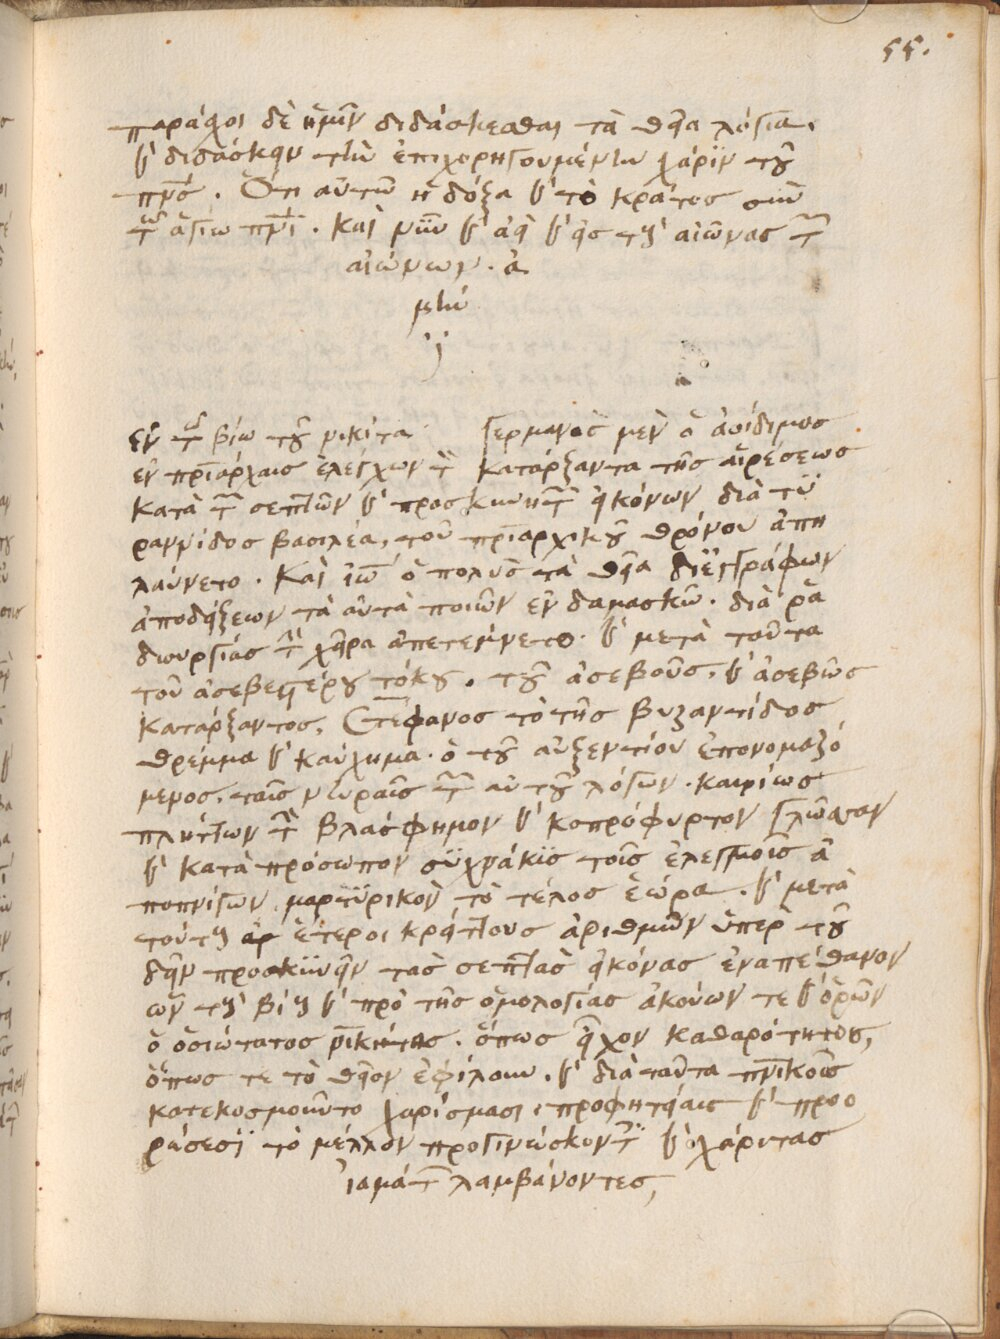 55.
παράσχοι δὲ ἡμῖν διδάσκεσθαι τὰ θεῖα λόγια.
καὶ διδάσκειν τὴν ἐπιχορηγουμένην χάριν τοῦ
πνς. Ὅτι αὐτῶ ἡ δόξα καὶ τὸ κράτος σὺν
τῶ ἁγίω πνι. καὶ νῦν καὶ ἀεὶ καὶ εἰς τοὺς αἰῶνας τῶν
αἰώνων. ἀ
μήν
ἐν τῶ βίω τοῦ νικήτα Γερμανὸς μὲν ὁ ἀοίδιμος
ἐν πριάρχαις ἐλέγχων τὸν κατάρξαντα τῆς αἱρέσεως
κατὰ τῶν σεπτῶν καὶ προσκυνητῶν εἰκόνων διὰ τυ
ραννίδος βασιλέα, τοῦ πριαρχικοῦ θρόνου ἀπη
λαύνετο. Καὶ ἰω ὁ πολὺς τὰ θεῖα διεγγράφων
ἀποδείξεων τὰ αὐτὰ ποιῶν ἐν δαμασκῶ. διὰ ῥα
διουργίας τὴν χεῖρα ἀπετέμνετο. καὶ μετὰ τοῦτα
τοῦ ἀσεβεστέρου τόκου. τοῦ ἀσεβοῦς, καὶ ἀσεβῶς
κατάρξαντος, Στέφανος τὸ τῆς βυζαντίδος
θρέμμα καὶ καύχημα. ὁ τοῦ αὐξεντίου ἐπονομαζό
μενος, ταῖς νευραῖς τῶν αὐτοῦ λόγων. καιρίως
πλήττων τὴν βλάσφημον καὶ κοπρόφυρτον γλῶσσαν
καὶ κατὰ πρόσωπον συχνάκις τοῖς ἐλεγμοῖς ἀ
ποπνίγων μαρτυρικὸν τὸ τέλος ἑώρα. καὶ μετὰ
τούτου ἕτεροι κρείττους ἀριθμῶν ὑπὲρ τοῦ
δεῖν προσκυνεῖν τὰς σεπτὰς εἰκόνας ἐναπέθανον
τοῦ βίου καὶ πρὸ τῆς ὁμολογίας ἀκούων τε καὶ ὁρῶν
ὁ ὁσιώτατος νικήτης. ὅπως εἶχον καθαρότητος,
ὅπως τε τὸ θεῖον ἐφίλουν. καὶ διὰ ταῦτα πνικοῖς
κατεκοσμοῦντο χαρίσμασι, προφητείαις καὶ προο
ράσεσι τὸ μέλλον προγινώσκοντες καὶ χάριτας
ἰαμάτων λαμβάνοντες,